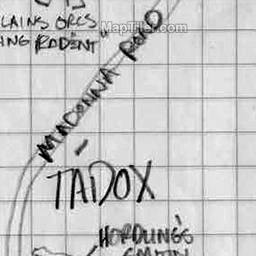 LAINS ORCS
ING RODENT"
MapTiler.com
MADONNA ROAD
TADOX
HORDLING'S